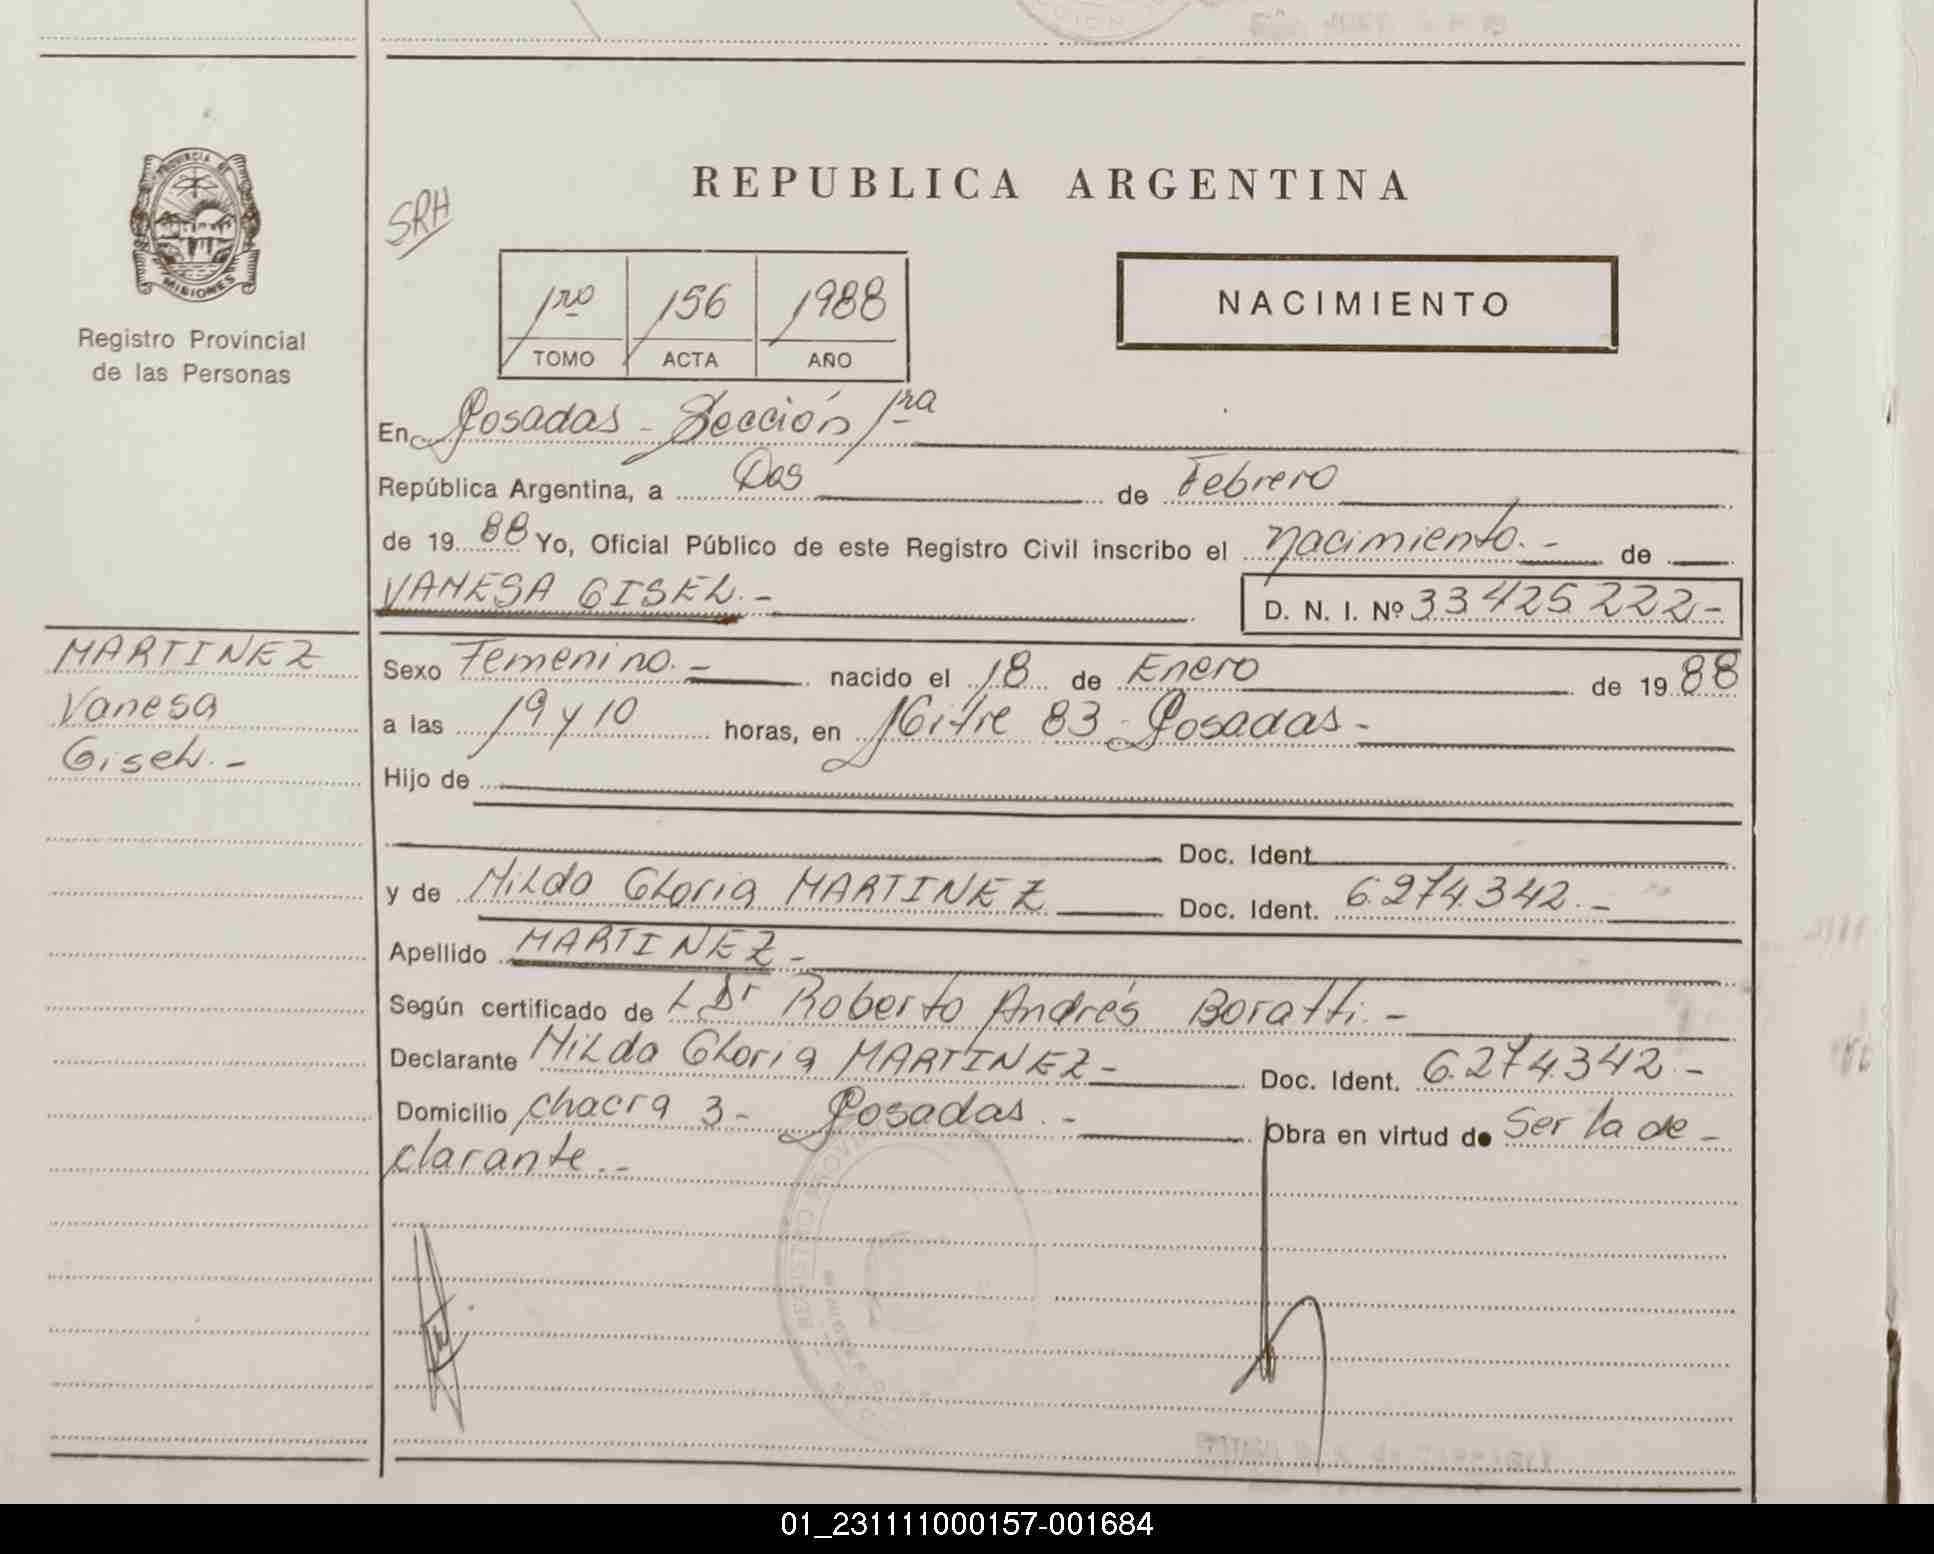 PROVINCIA DE
MISIONES
Registro Provincial
de las Personas
SRH
REPUBLICA ARGENTINA
1ro 156 1988
TOMO ACTA AÑO
NACIMIENTO
En Posadas - Sección 1ra
República Argentina, a Dos de Febrero
de 1988 Yo, Oficial Público de este Registro Civil inscribo el nacimiento.- de
VANESA GISEL.- D. N. I. Nº 33425222-
MARTINEZ
Vanesa
Gisel.-
Sexo Femenino.- nacido el 18 de Enero de 1988
a las 19 y 10 horas, en Mitre 83 - Posadas-
Hijo de
Doc. Ident.
y de Hilda Gloria MARTINEZ Doc. Ident. 6.274.342.-
Apellido MARTINEZ-
Según certificado de Dr Roberto Andrés Boratti.-
Declarante Hilda Gloria MARTINEZ- Doc. Ident. 6.274.342-
Domicilio chacra 3- Posadas.- Obra en virtud de Ser la de-
clarante.-
REGISTRO PROVI
01_231111000157-001684